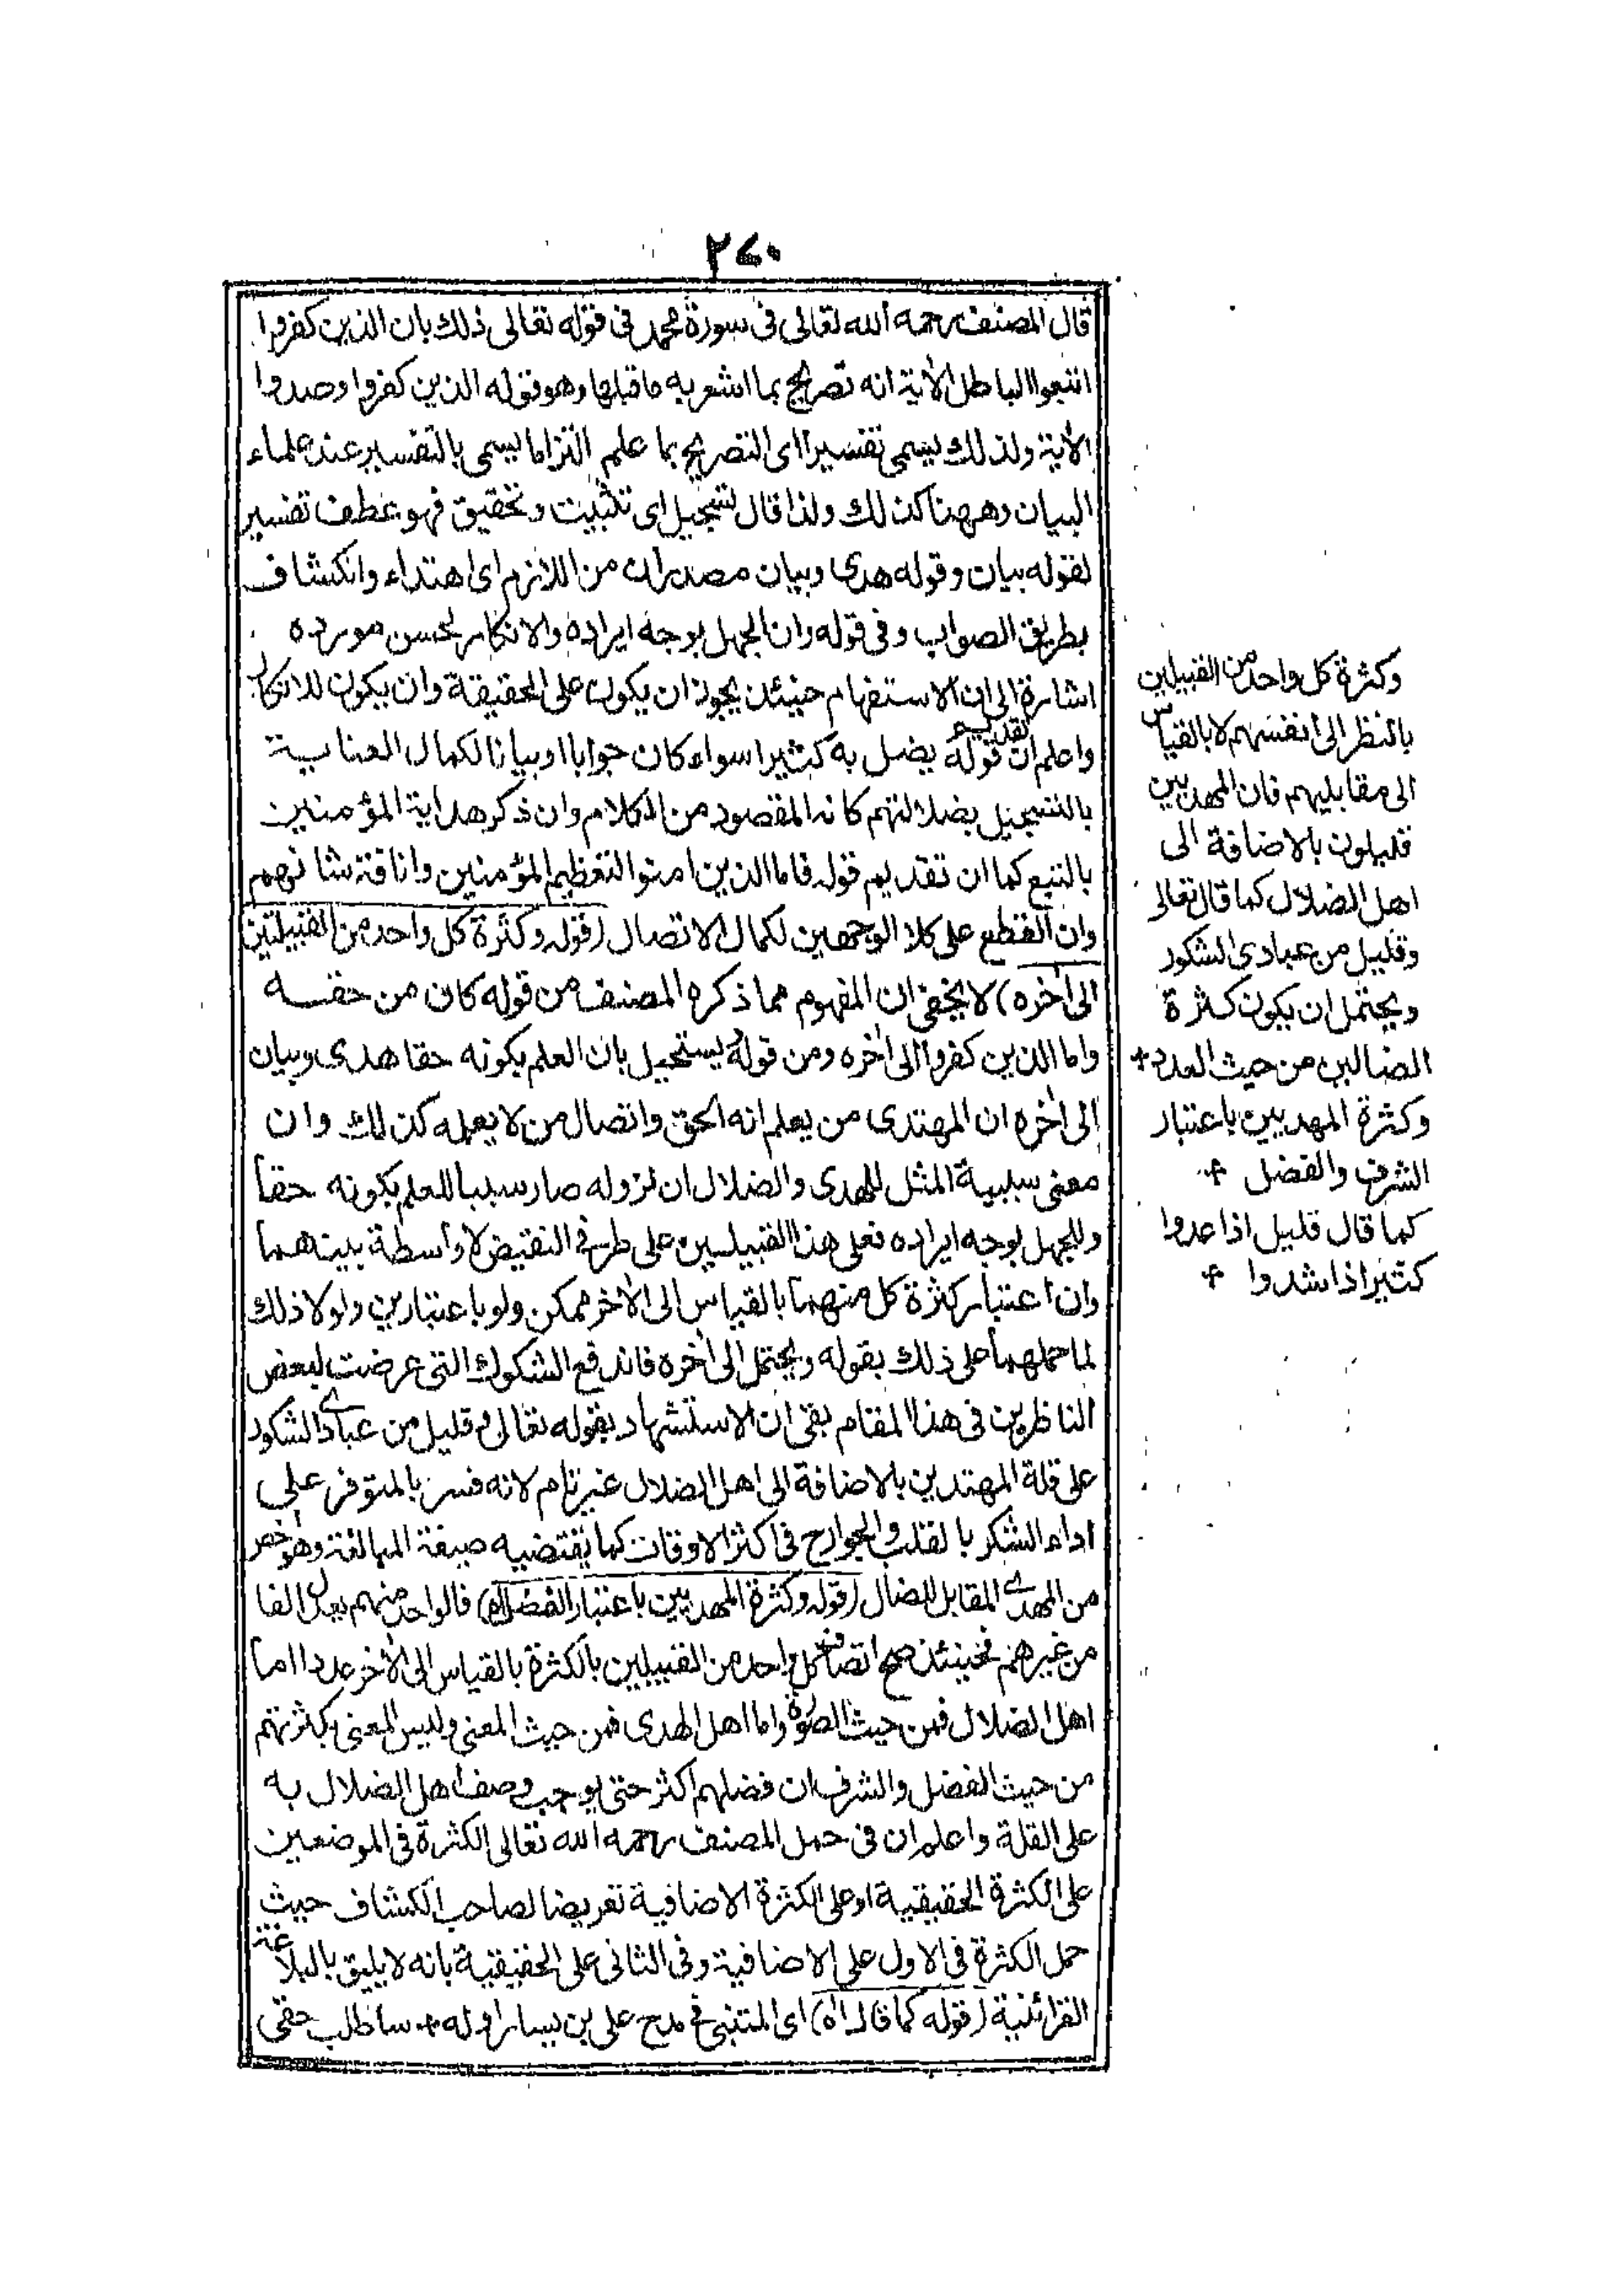 ٢٧٠
قال المصنف رحمه الله تعالى فى سورة محمد فى قوله تعالى ذلك بان الذين كفروا
اتبعوا الباطل الأية انه تصريح بما اشعر به ما قبلها وهو قوله الذين كفروا وصدوا
الأية ولذلك يسمى تفسيرا اى التصريح بما علم التزاما يسمى بالتفسير عند علماء
البيان وههنا كذلك ولذا قال تسجيل اى تثبيت وتحقيق فهو عطف تفسير
لقوله بيان وقوله هدى وبيان مصدران من اللازم اى اهتداء وانكشاف
بطريق الصواب وفى قوله وان الجهل بوجه ايراده والانكار لحسن مورده
اشارة الى ان الاستفهام حينئذ يجوز ان يكون على الحقيقة وان يكون للانكار
واعلم ان تقديم قوله يضل به كثيرا سواء كان جوابا او بيانا لكمال العناية
بالتسجيل بضلالتهم كانه المقصود من الكلام وان ذكر هداية المؤمنين
بالتبع كما ان تقديم قوله فاما الذين امنوا لتعظيم المؤمنين واناقة شانهم
وان القطع على كلا الوجهين لكمال الاتصال (قوله وكثرة كل واحد من القبيلتين
الى أخره) لا يخفى ان المفهوم مما ذكره المصنف من قوله كان من حقه
واما الذين كفروا الى أخره ومن قوله يستحيل بان العلم بكونه حقا هدى وبيان
الى أخره ان المهتدى من يعلم انه الحق واتصال من لا يعلمه كذلك وان
معنى سببية المثل للهدى والضلال ان نزوله صار سببا للعلم بكونه حقا
وللجهل بوجه ايراده فعلى هذا القبيلين على طرفى النقيض لا واسطة بينهما
وان اعتبار كثرة كل منهما بالقياس الى الأخر ممكن ولو باعتبارين ولولا ذلك
لما حملهما على ذلك بقوله ويحتمل الى أخره فاندفع الشكوك التى عرضت لبعض
الناظرين فى هذا المقام بقى ان الاستشهاد بقوله تعالى وقليل من عبادى الشكور
على قلة المهتدين بالاضافة الى اهل الضلال غير تام لانه فسر بالمتوفر على
اداء الشكر بالقلب والجوارح فى اكثر الاوقات كما يقتضيه صيغة المبالغة وهو اخص
من المهدى المقابل للضال (قوله وكثرة المهديين باعتبار الفضل اه) فالواحد منهم يعدل الفا
من غيرهم فحينئذ صح اتصاف كل واحد من القبيلين بالكثرة بالقياس الى الأخر عددا اما
اهل الضلال فمن حيث الصورة واما اهل الهدى فمن حيث المعنى وليس المعنى بكثرتهم
من حيث الفضل والشرف ان فضلهم اكثر حتى يوجب وصف اهل الضلال به
على القلة واعلم ان فى حمل المصنف رحمه الله تعالى الكثرة فى الموضعين
على الكثرة الحقيقية او على الكثرة الاضافية تعريضا لصاحب الكشاف حيث
حمل الكثرة فى الاول على الاضافية وفى الثانى على الحقيقية بانه لا يليق بالبلاغة
القرانية (قوله كما قال اه) اى المتنبى فى مدح على بن يسار اوله * ساطلب حقى
وكثرة كل واحد من القبيلين
بالنظر الى انفسهم لا بالقياس
الى مقابليهم فان المهديين
قليلون بالاضافة الى
اهل الضلال كما قال تعالى
وقليل من عبادى الشكور
ويحتمل ان يكون كثرة
الضالين من حيث العدد *
وكثرة المهديين باعتبار
الشرف والفضل *
كما قال قليل اذا عدوا
كثير اذا شدوا *